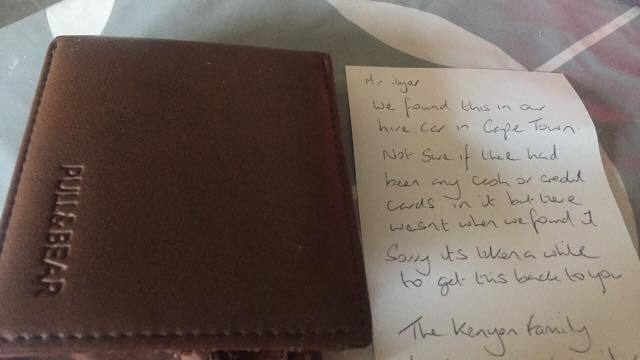 PULL&BEAR
Mr
We found this in our
hire car in Cape Town.
Not sure if there had
been any cash or credit
cards in it but there
wasnt when we found it
Sorry its taken a while
to get this back to you
The Kenyon Family